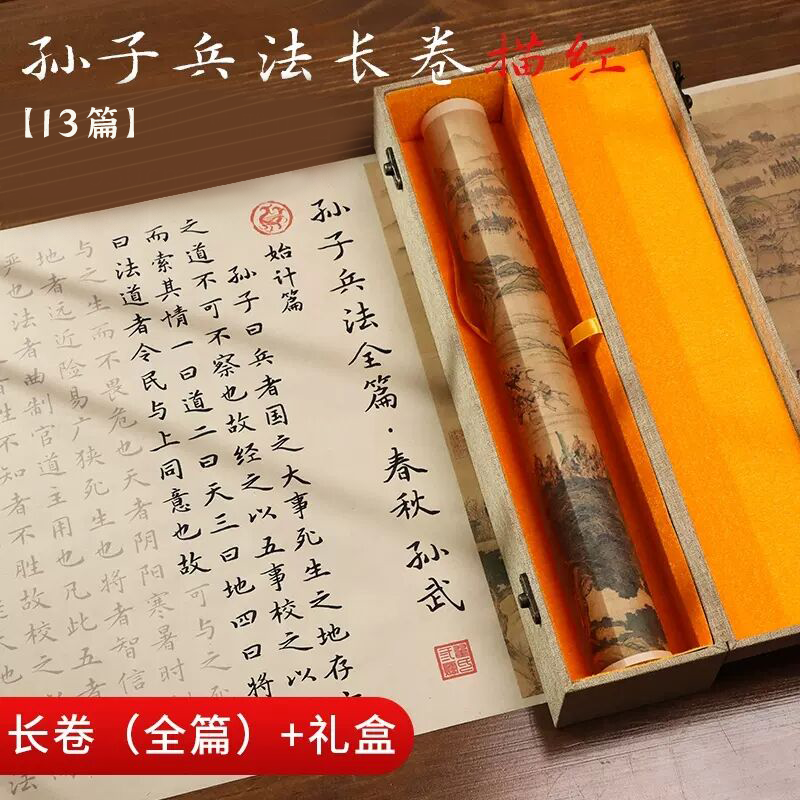 孙子兵法长卷描红
【13篇】
孙子兵法全篇·春秋 孙武
始计篇
孙子曰兵者国之大事死生之地存
之道不可不察也故经之以五事校之以
而索其情一曰道二曰天三曰地四曰将
曰法道者令民与上同意也故可与之
与之生而不畏危也天者阴阳寒暑时
地者远近险易广狭死生也将者智信
严也法者曲制官道主用也凡此五者
不知者不胜故校之
长卷（全篇）+礼盒